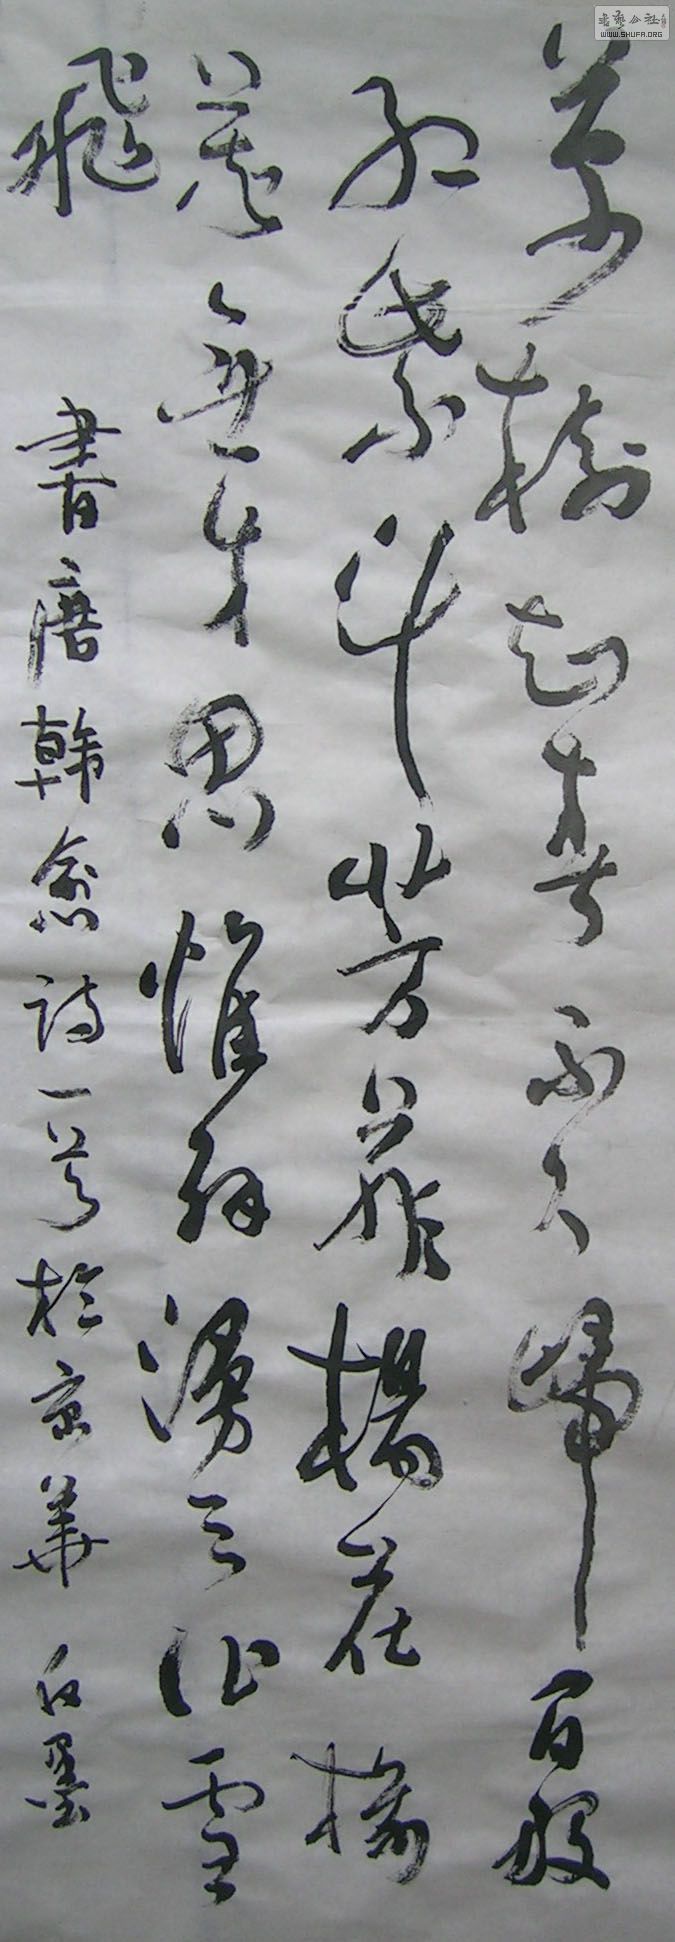 草樹知春不久歸百般
紅紫斗芳菲楊花榆
莢無才思惟解漫天作雪
飛
書唐韓愈詩一首於京華 墨
書藝公社
WWW.SHUFA.ORG